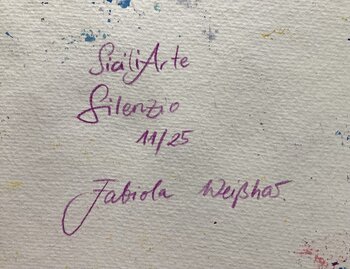 SiciliArte
Silenzio
11/25
Fabiola Weißhar